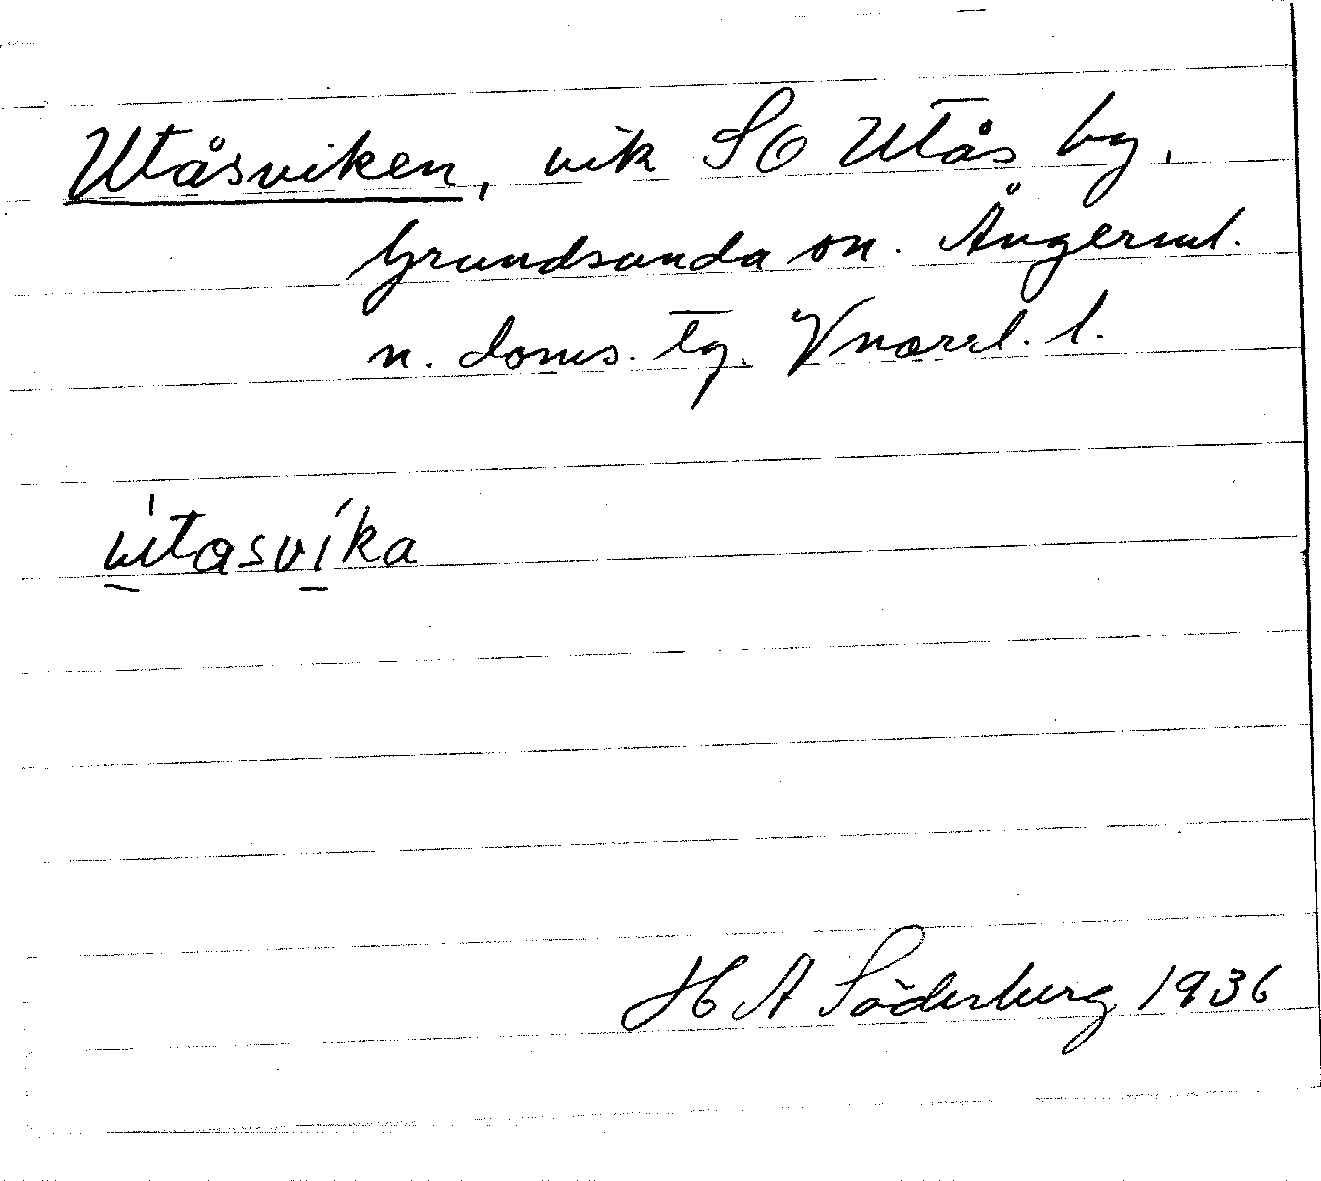 Utåsviken, vik SO Utås by,
Grundsunda sn. Ångerml.
n. doms. tg. Vnorrl. l.
u̱tasvi̱ka
H A Söderberg 1936